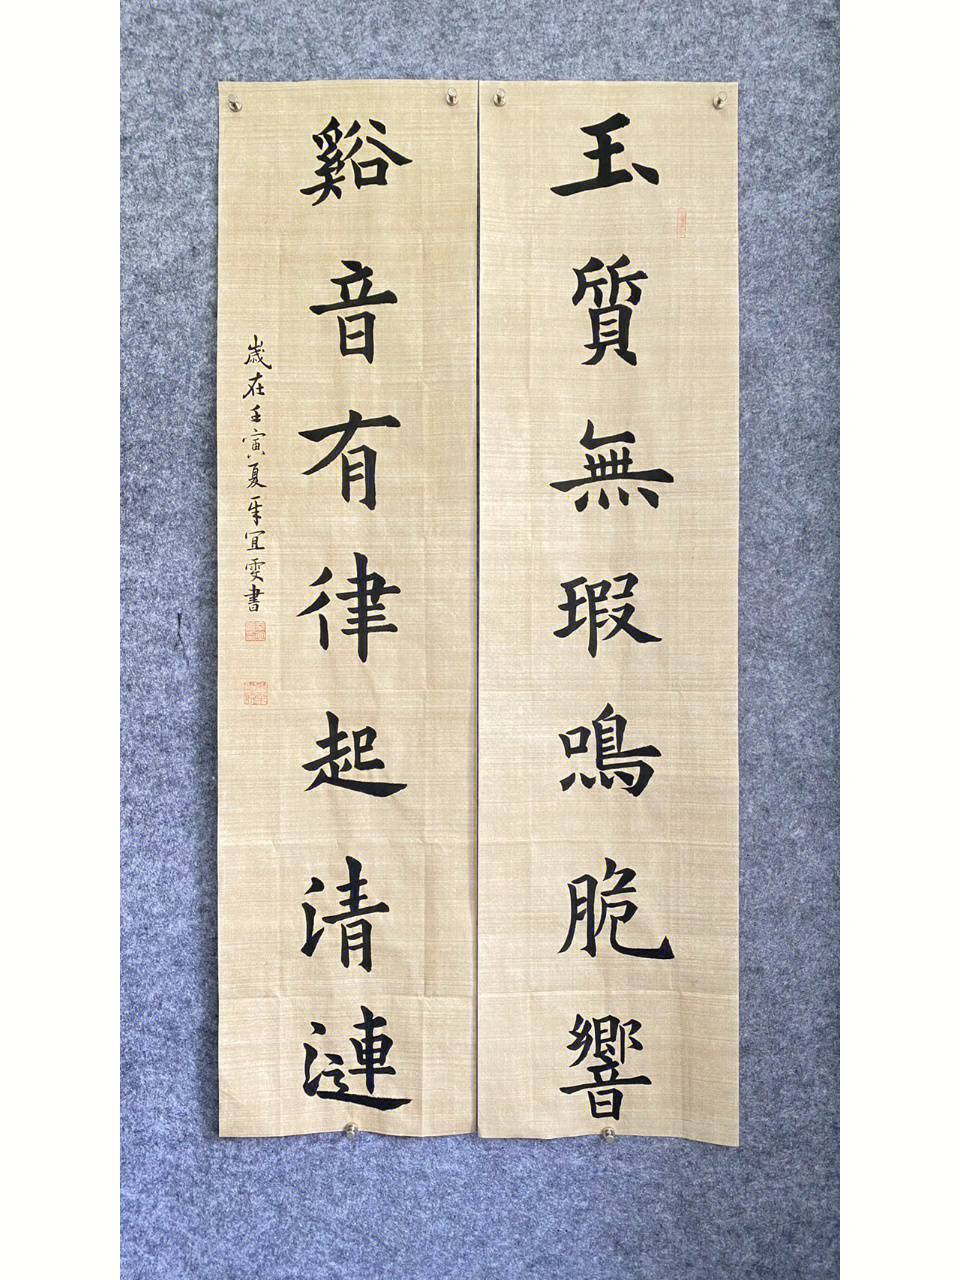 玉質無瑕鳴脆響
谿音有律起清漣
歲在壬寅夏年宜雯書